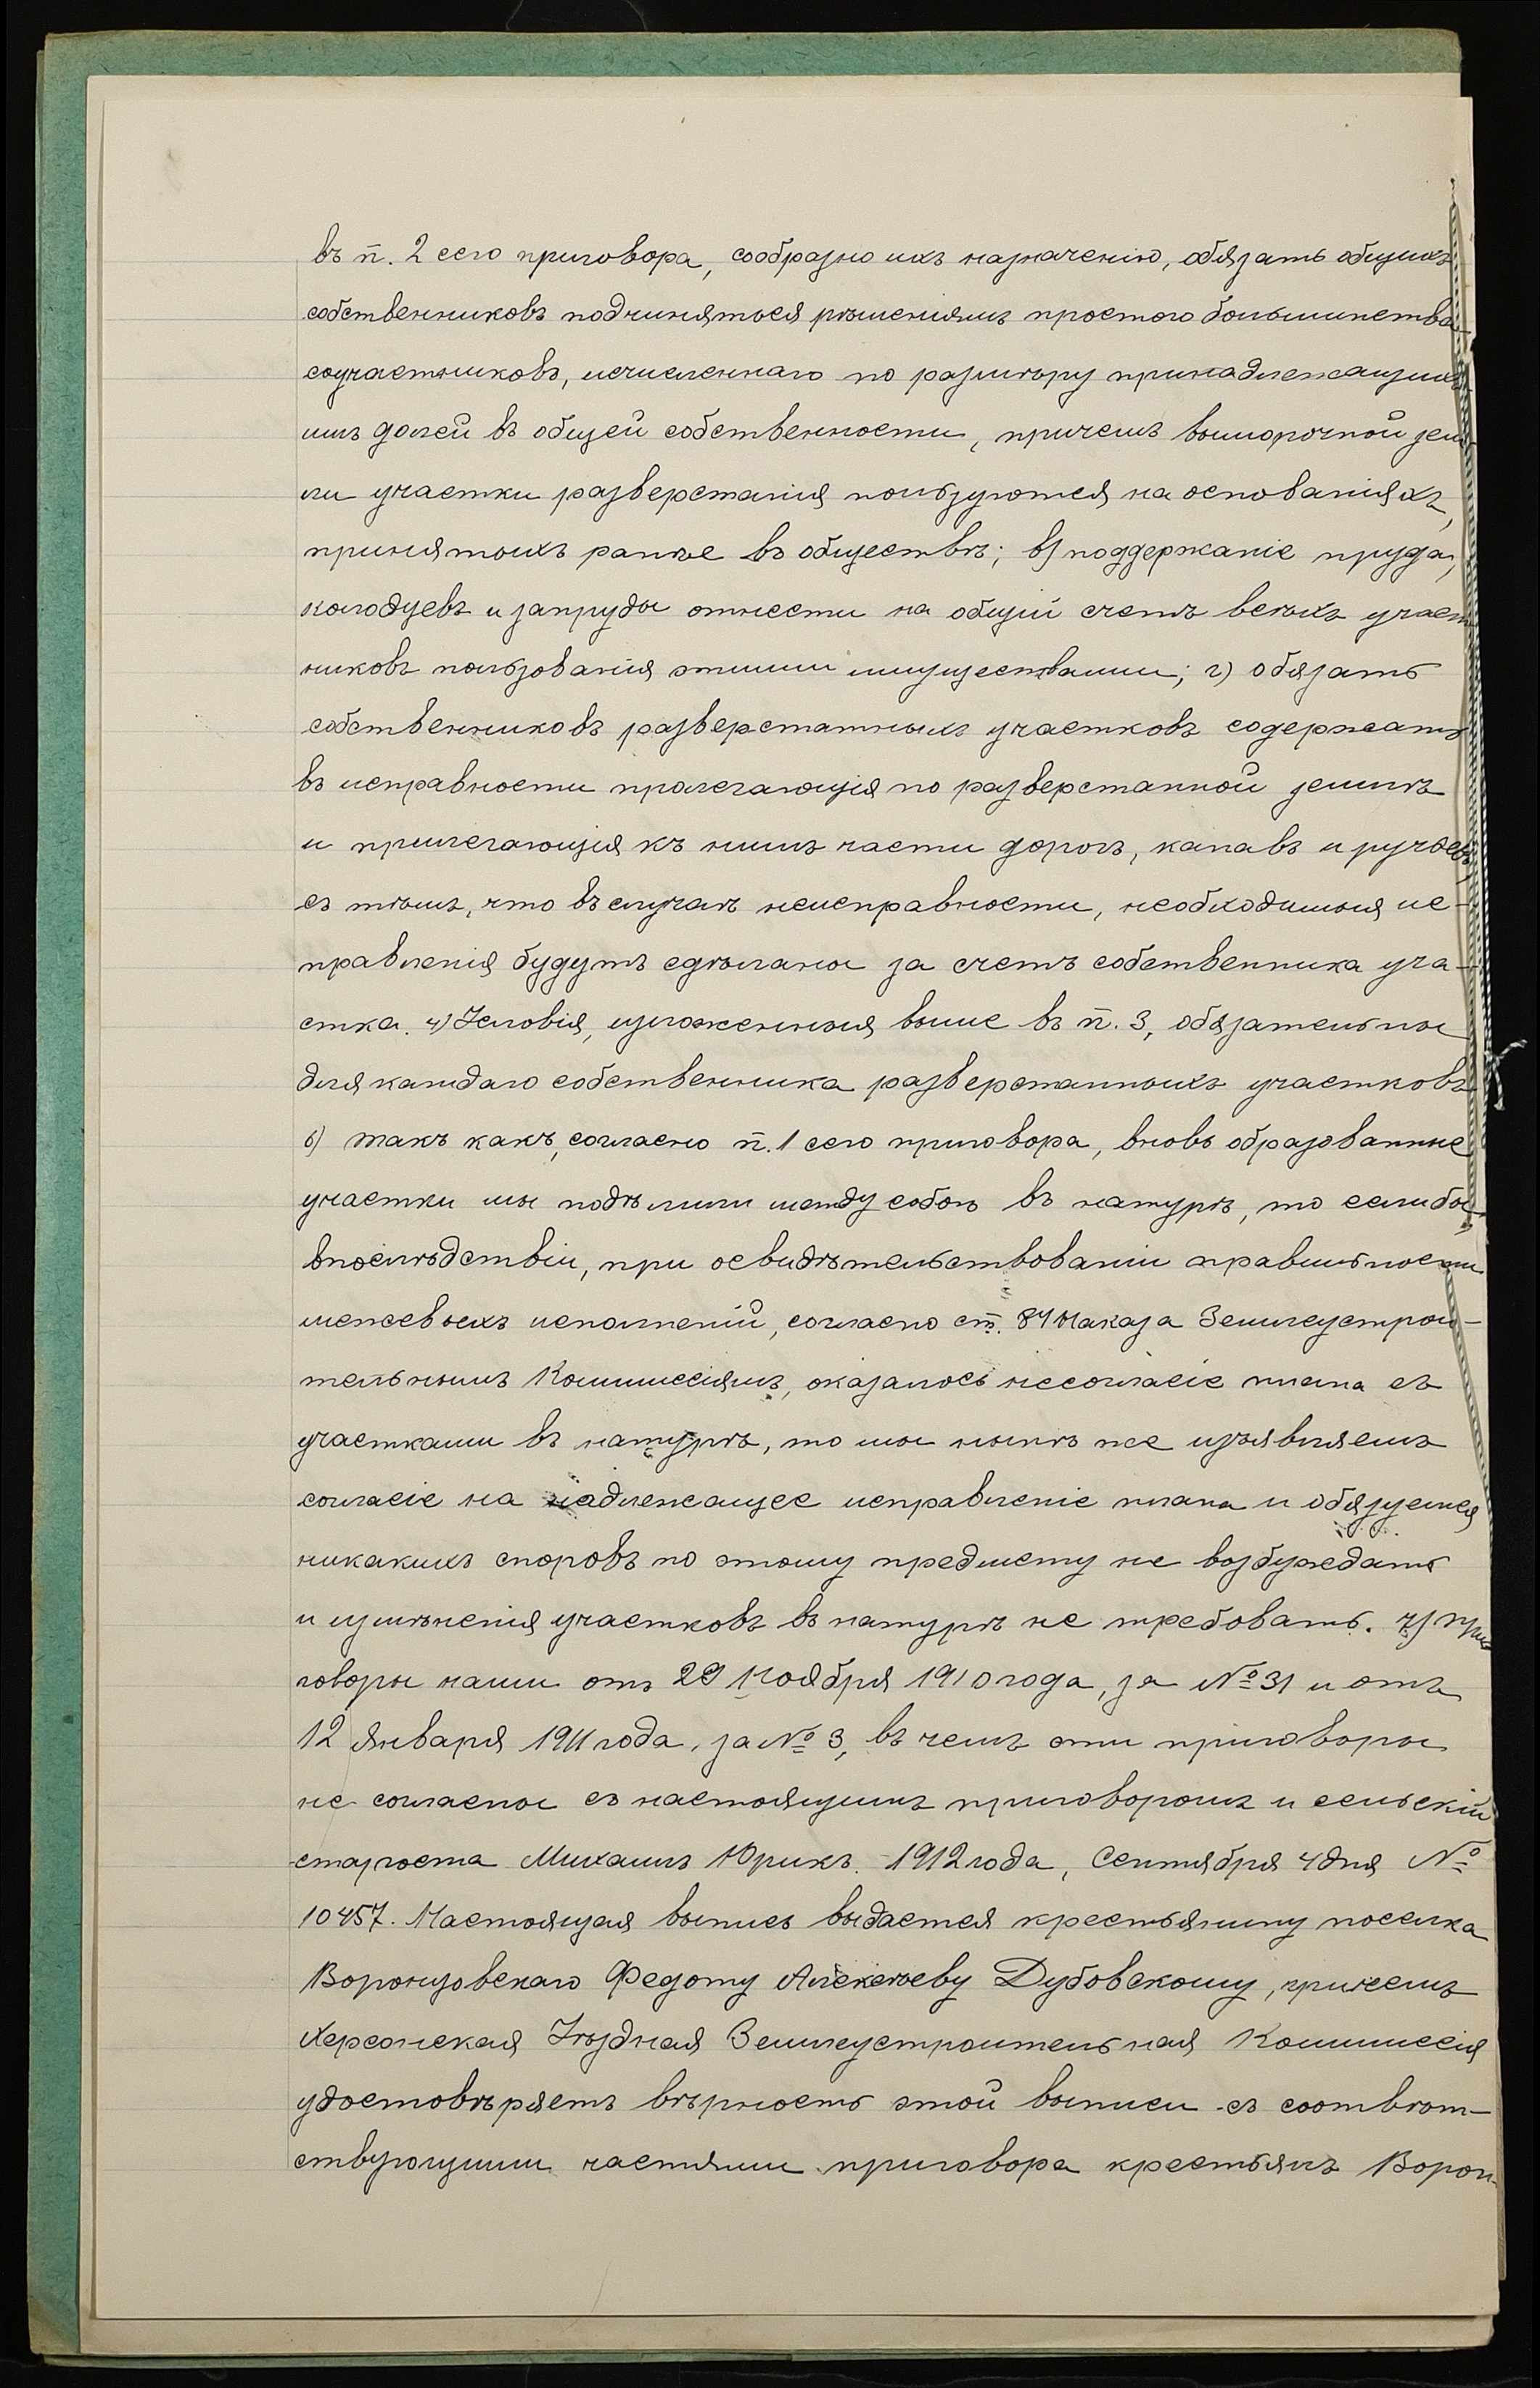 въ п. 2 сего приговора, сообразно ихъ назначенію, обязать общихъ
собственниковъ подчиняться рѣшеніямъ простого большинства
соучастниковъ, исчисленнаго по размѣру принадлежащихъ
имъ долей въ общей собственности, причемъ выморочной зем-
ли участки разверстанія пользуются на основаніяхъ,
принятыхъ ранѣе въ обществѣ; в) поддержаніе пруда,
колодцевъ и запруды отнести на общій счетъ всѣхъ участ
никовъ пользованія этими имуществами; г) обязать
собственниковъ разверстатныхъ участковъ содержать
въ исправности пролегающія по разверстанной землѣ
и прилегающія къ нимъ части дорогъ, канавъ и ручьевъ,
съ тѣмъ, что въ случаѣ неисправности, необходимыя ис-
правленія будутъ сдѣланы за счетъ собственника уча-
стка. 4) Условія, изложенныя выше въ п. 3, обязательны
для каждаго собственника разверстанныхъ участковъ
6) такъ какъ, согласно п. 1 сего приговора, вновь образованные
участки мы подѣлили между собою въ натурѣ, то если бы
впослѣдствіи, при освидѣтельствованіи правильности
межевыхъ исполненій, согласно ст. 84 Наказа Землеустрои-
тельнымъ Коммиссіямъ, оказалось несогласіе плана съ
участками въ натурѣ, то мы нынѣ же изъявляемъ
согласіе на надлежащее исправленіе плана и обязуемся
никакихъ споровъ по этому предмету не возбуждать
и измѣненія участковъ въ натурѣ не требовать. 7) При
говоры наши отъ 29 Ноября 1910 года, за № 31 и отъ
12 Января 1911 года, за № 3, въ чемъ эти приговоры
не согласны съ настоящимъ приговоромъ и сельскій
староста Михаилъ Юрикъ. 1912 года, Сентября 4 дня №
10457. Настоящая выпись выдается крестьянину поселка
Воронцовскаго Федоту Алексѣеву Дубовскому, причемъ
Херсонская Уѣздная Землеустроительная Коммиссія
удостовѣряетъ вѣрность этой выписи съ соотвѣт-
ствующими частями приговора крестьянъ Ворон-